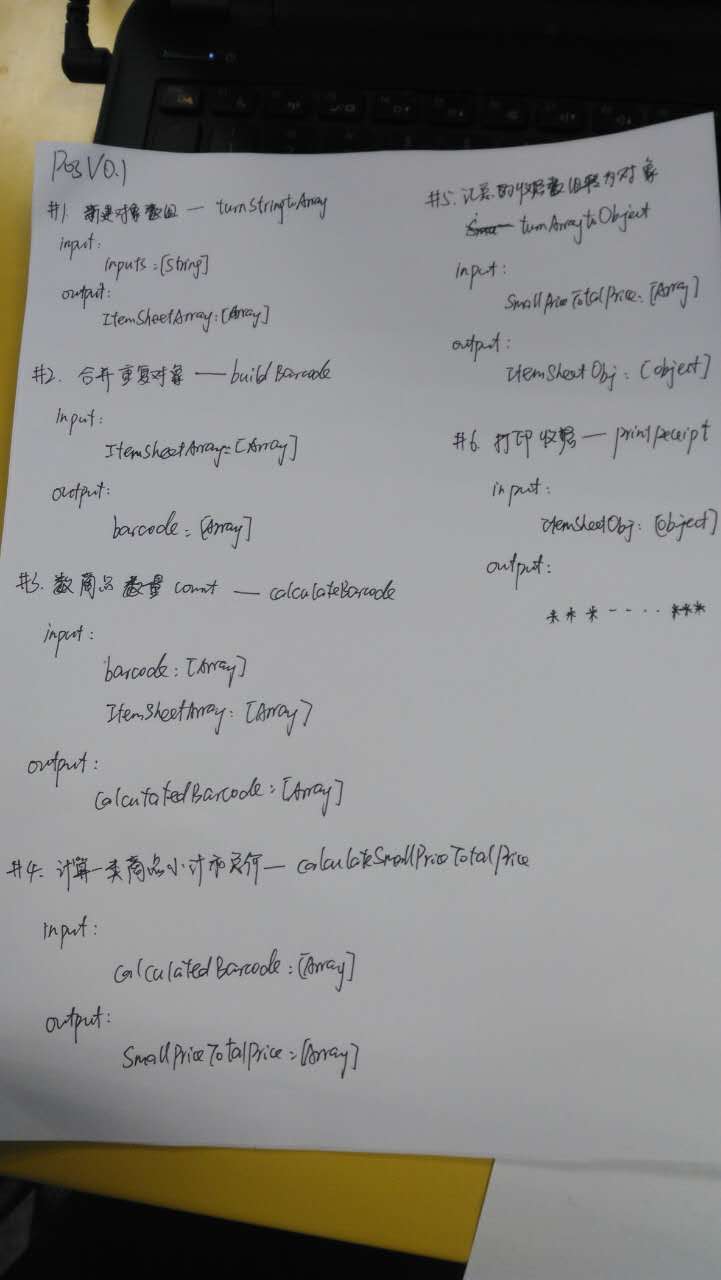 Pos V0.1
#1. 新建对象数组 — turnStringtoArray
input:
inputs:[String]
output:
ItemSheetArray:[Array]
#2. 合并重复对象 — buildBarcode
input:
ItemSheetArray:[Array]
output:
barcode:[Array]
#3. 数商品数量 count — calculateBarcode
input:
barcode:[Array]
ItemSheetArray:[Array]
output:
CalculatedBarcode:[Array]
#4. 计算一类商品小计和总价 — calculateSmallPriceTotalPrice
input:
CalculatedBarcode:[Array]
output:
SmallPriceTotalPrice:[Array]
#5. 的收据数组转为对象
— turnArraytoObject
input:
SmallPriceTotalPrice:[Array]
output:
ItemSheetObj:[object]
#6. 打印收据 — printReceipt
input:
itemSheetObj:[object]
output:
***--..***